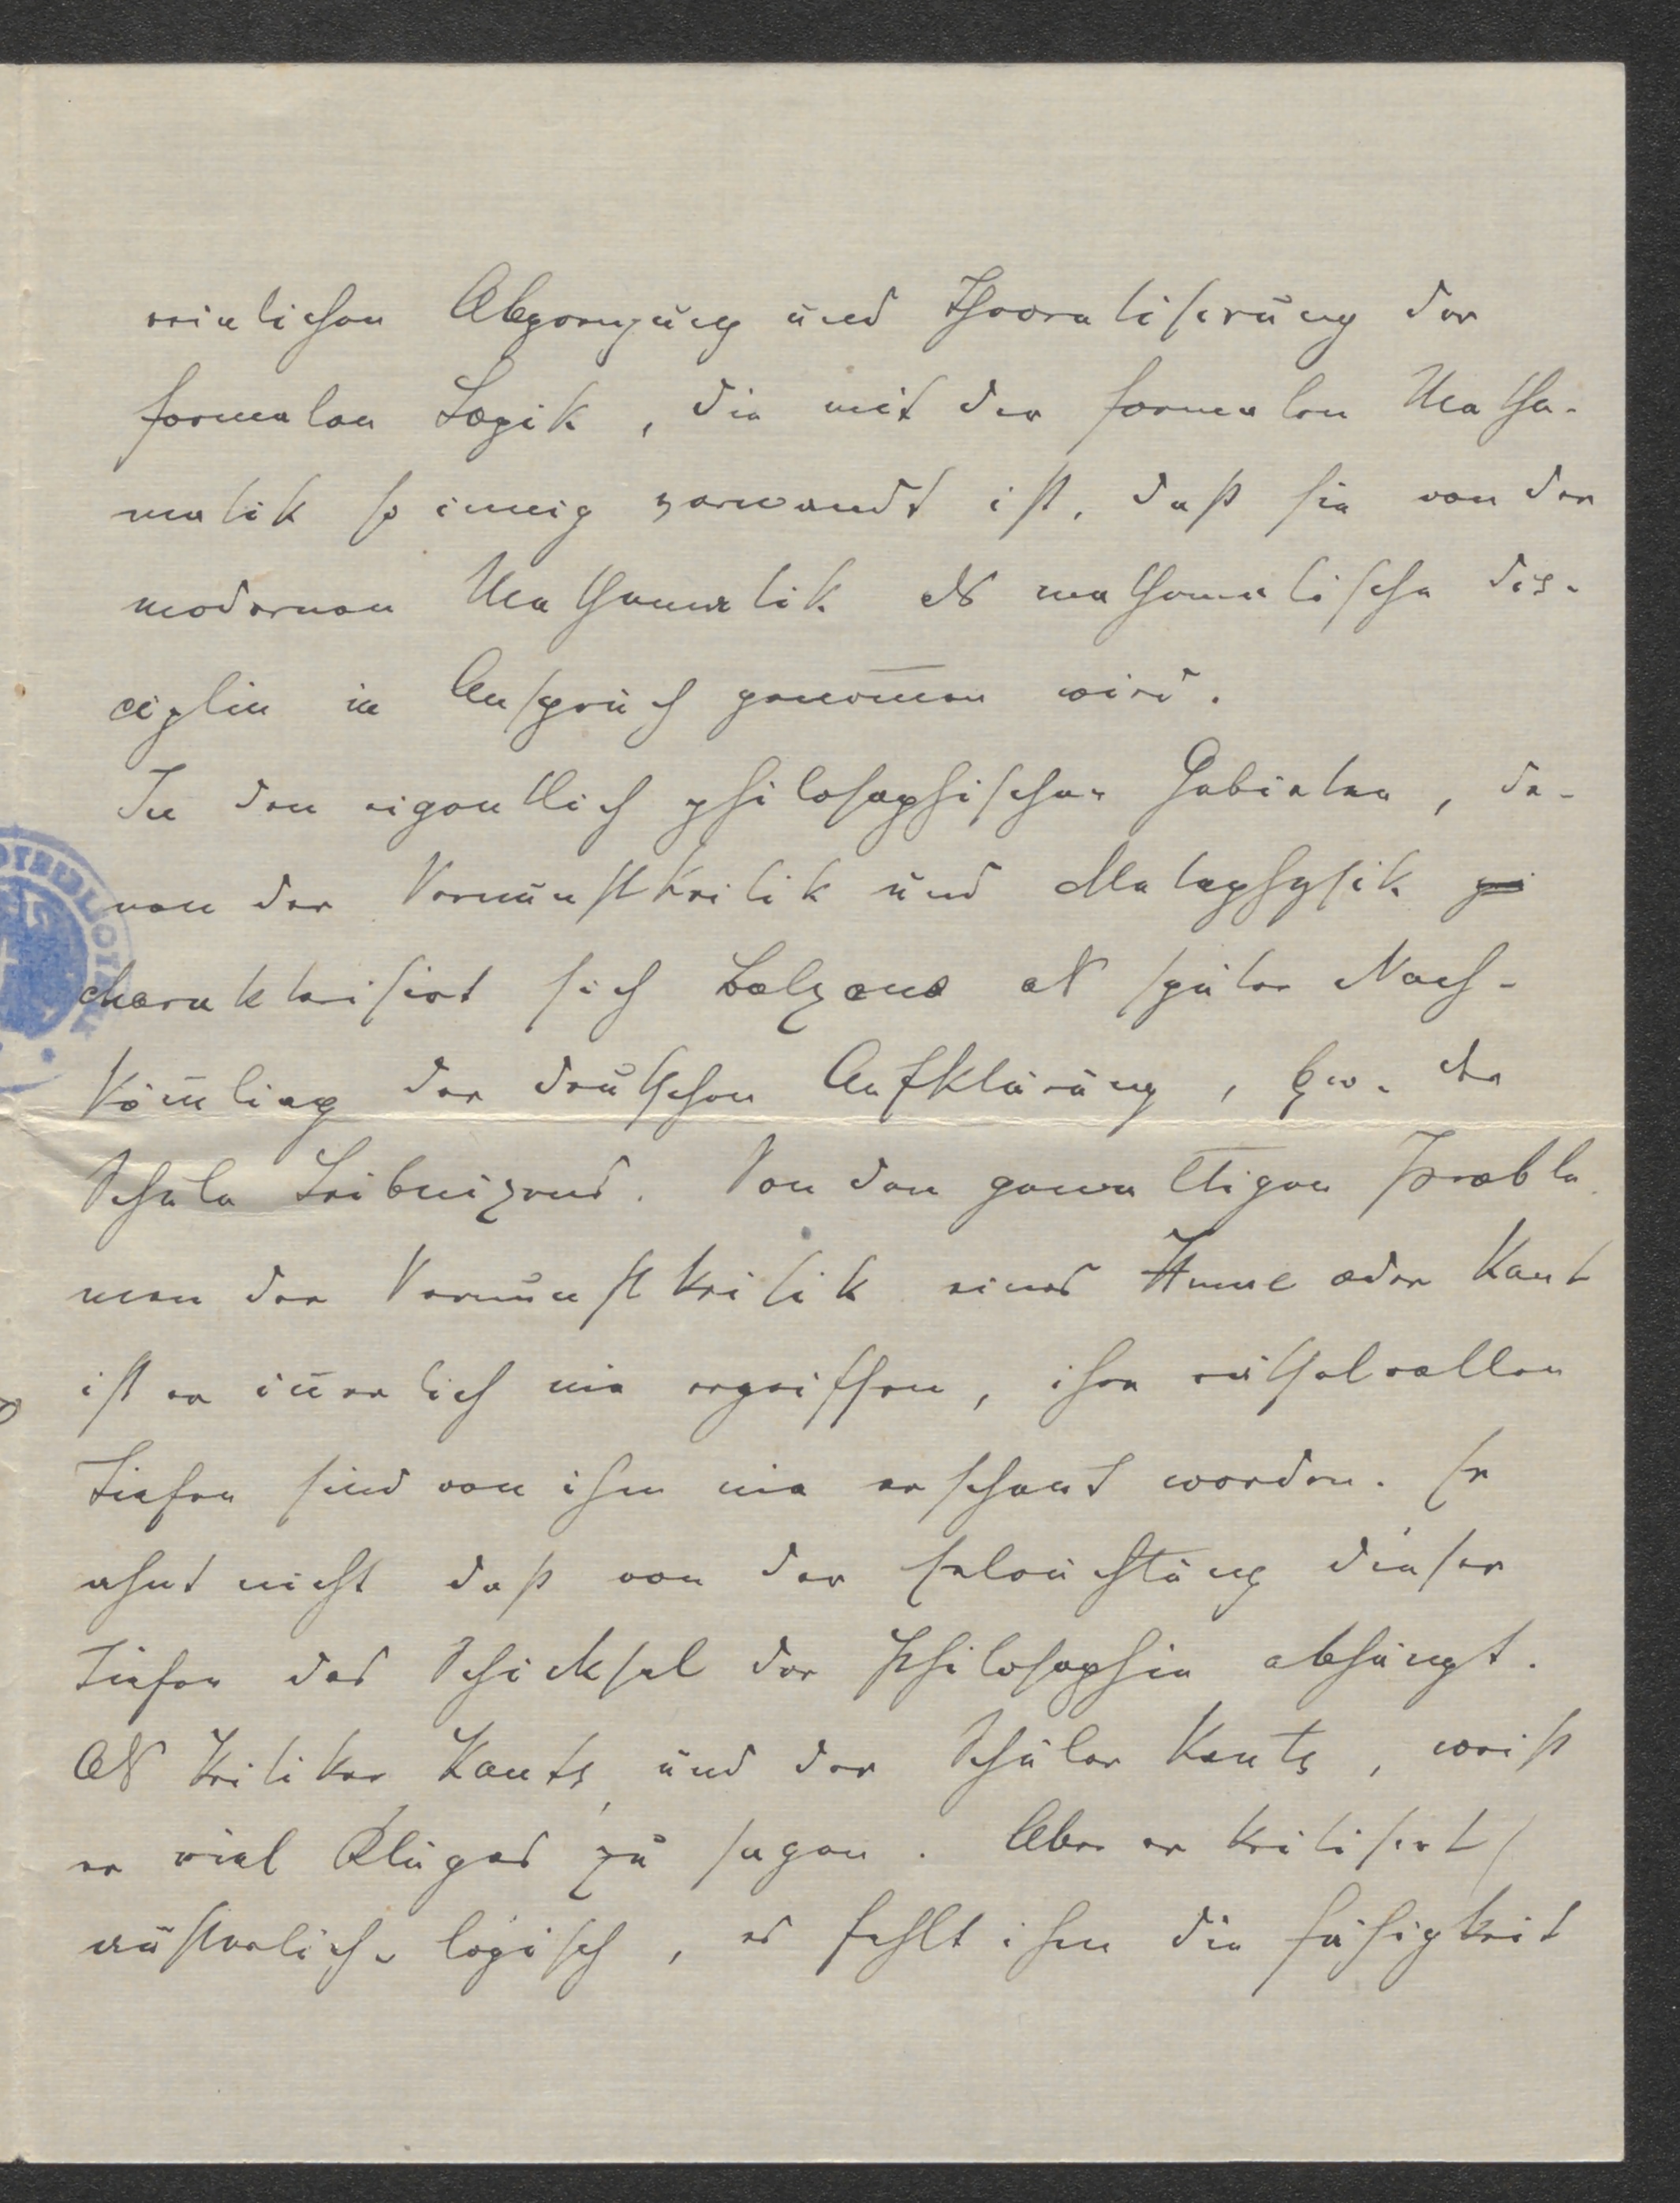 reinlichen Abgrenzung und Theoretisierung der
formalen Logik, die mit der formalen Mathe-
matik so innig verwandt ist, daß sie von der
modernen Mathematik als mathematische Dis-
ciplin in Anspruch genom̅en wird.
In den eigentlich philosophischen Gebieten, de-
nen der Vernunftkritik und Metaphysik
charakterisiert sich Bolzano als später Nach-
kom̅ling der deutschen Aufklärung, bzw. der
Schule Leibnizens. Von den gewaltigen Proble
men der Vernunftkritik eines Hume oder Kant
ist er in̅erlich nie ergriffen, ihre rätselvollen
Tiefen sind von ihm nie erschaut worden. Er
ahnt nicht daß von der Erleuchtung dieser
Tiefen das Schicksal der Philosophie abhängt.
Als Kritiker Kants, und der Schüler Kants, weiß
er viel Kluges zu sagen. Aber er kritisiert
äußerlich logisch, es fehlt ihm die Fähigkeit